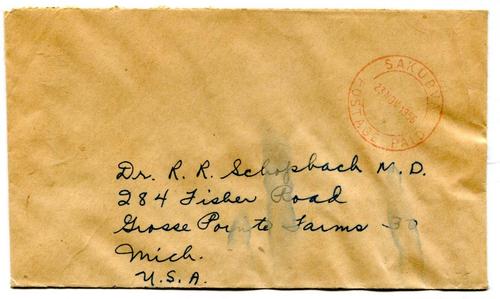 SAKURA
23 NOV 1956
POSTAGE PAID
Dr. R. R. Schopbach M.D.
284 Fisher Road
Grosse Poynte Farms 30
Mich.
U.S.A.